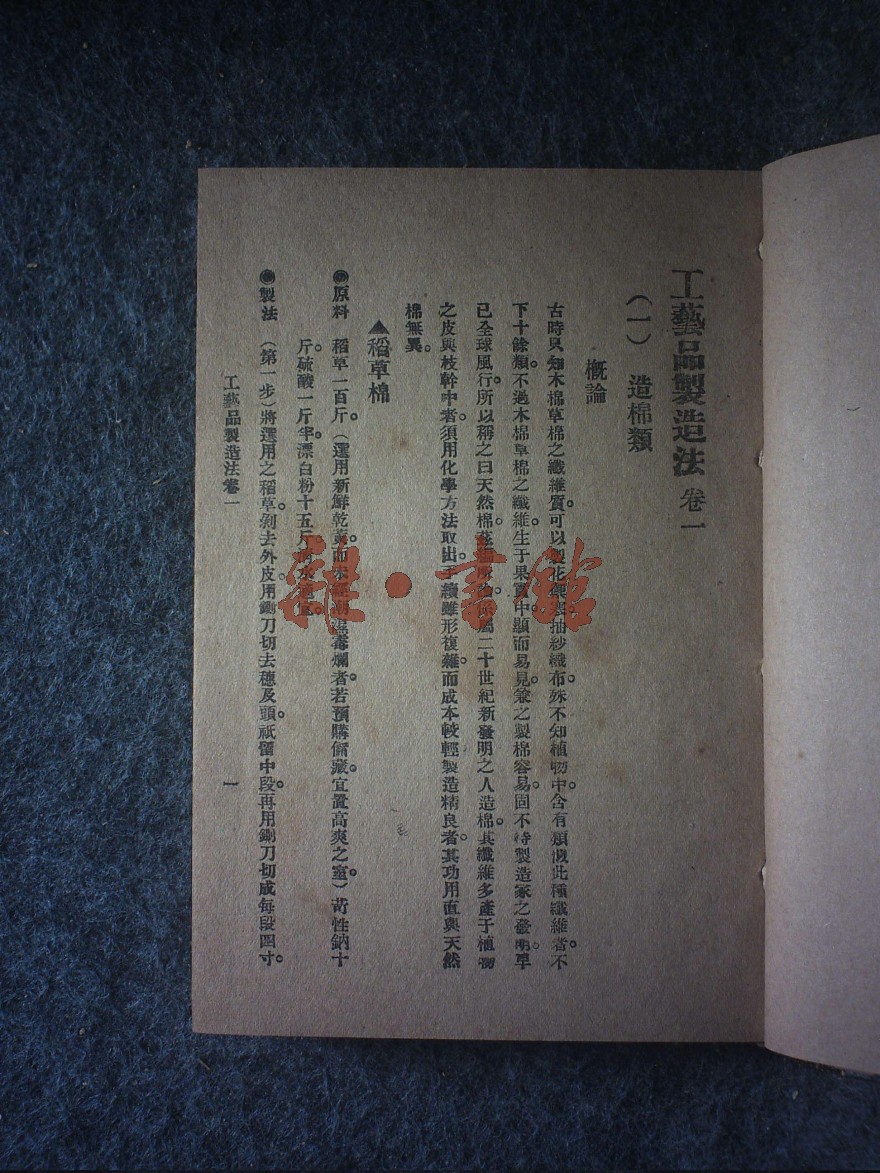 工藝品製造法 卷一
（一） 造棉類
概論
古時只知木棉草棉之纖維質。可以製花絮。抽紗織布。殊不知植物中。含有類似此種纖維者。不
下十餘類。不過木棉草棉之纖維。生于果實中。顯而易見。兼之製棉容易。固不待製造家之發明。早
已全球風行。所以稱之曰天然棉。二十世紀新發明之人造棉。其纖維多產于植物
之皮與枝幹中者。須用化學方法取出。手續雖形複雜。而成本較輕。製造精良者。其功用直與天然
棉無異。
▲稻草棉
◉原料 稻草一百斤。（選用新鮮乾黃。而未經潮濕霉爛者。若預購儲藏。宜置高爽之室。）苛性鈉十
斤。硫酸一斤半。漂白粉十五斤。清水適宜。
◉製法 （第一步）將選用之稻草。剝去外皮。用鍘刀切去穗及頭。祇留中段。再用鍘刀切成每段四寸。
工藝品製造法卷一
一
雜·書館